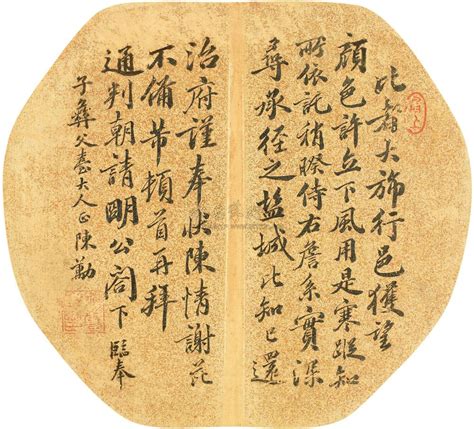 比辱大旆行邑獲望
顏色許立下風用是寒蹤知
所依託稍睽侍右詹系實深
尋承徑之塩城比知已還
治府謹奉狀陳情謝芾
不備芾頓首再拜
通判朝請明公閣下 臨奉
子彝父臺大人正陳勱